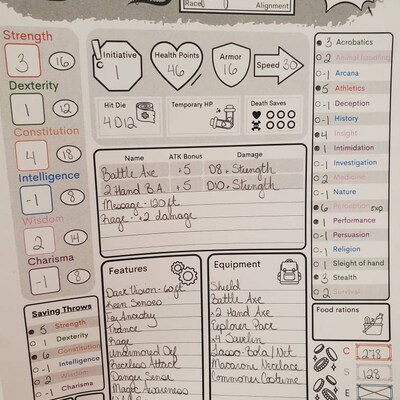 Race
Alignment
Strength
3 16
Dexterity
1 12
Constitution
4 18
Intelligence
-1 8
Wisdom
2 14
Charisma
-1 8
Initiative
1
Health Points
46
Armor
16
Speed 30
Hit Die
4D12
Temporary HP
Death Saves
Name ATK Bonus Damage
Battle Axe +5 D8 + Strength
2 Hand B.A. +5 D10 + Strength
Message - 120 ft
Rage - +2 damage
3 Acrobatics
2 Animal handling
-1 Arcana
5 Athletics
-1 Deception
-1 History
4 Insight
1 Intimidation
-1 Investigation
2 Medicine
-1 Nature
6 Perception exp
1 Performance
-1 Persuasion
-1 Religion
1 Sleight of hand
3 Stealth
2 Survival
Saving Throws
5 Strength
1 Dexterity
6 Constitution
-1 Intelligence
2 Wisdom
-1 Charisma
Features
Dark Vision - 60ft
Keen Senses
Fey Ancestry
Trance
Rage
Unarmored Def
Reckless Attack
Danger Sense
Magic Awareness
Equipment
Shield
Battle Axe
x2 Hand Axe
Explorer Pack
x4 Javelin
Lasso - Bola / Net
Macaroni Necklace
Commoner Costume
Food rations
C 278
S 128
E